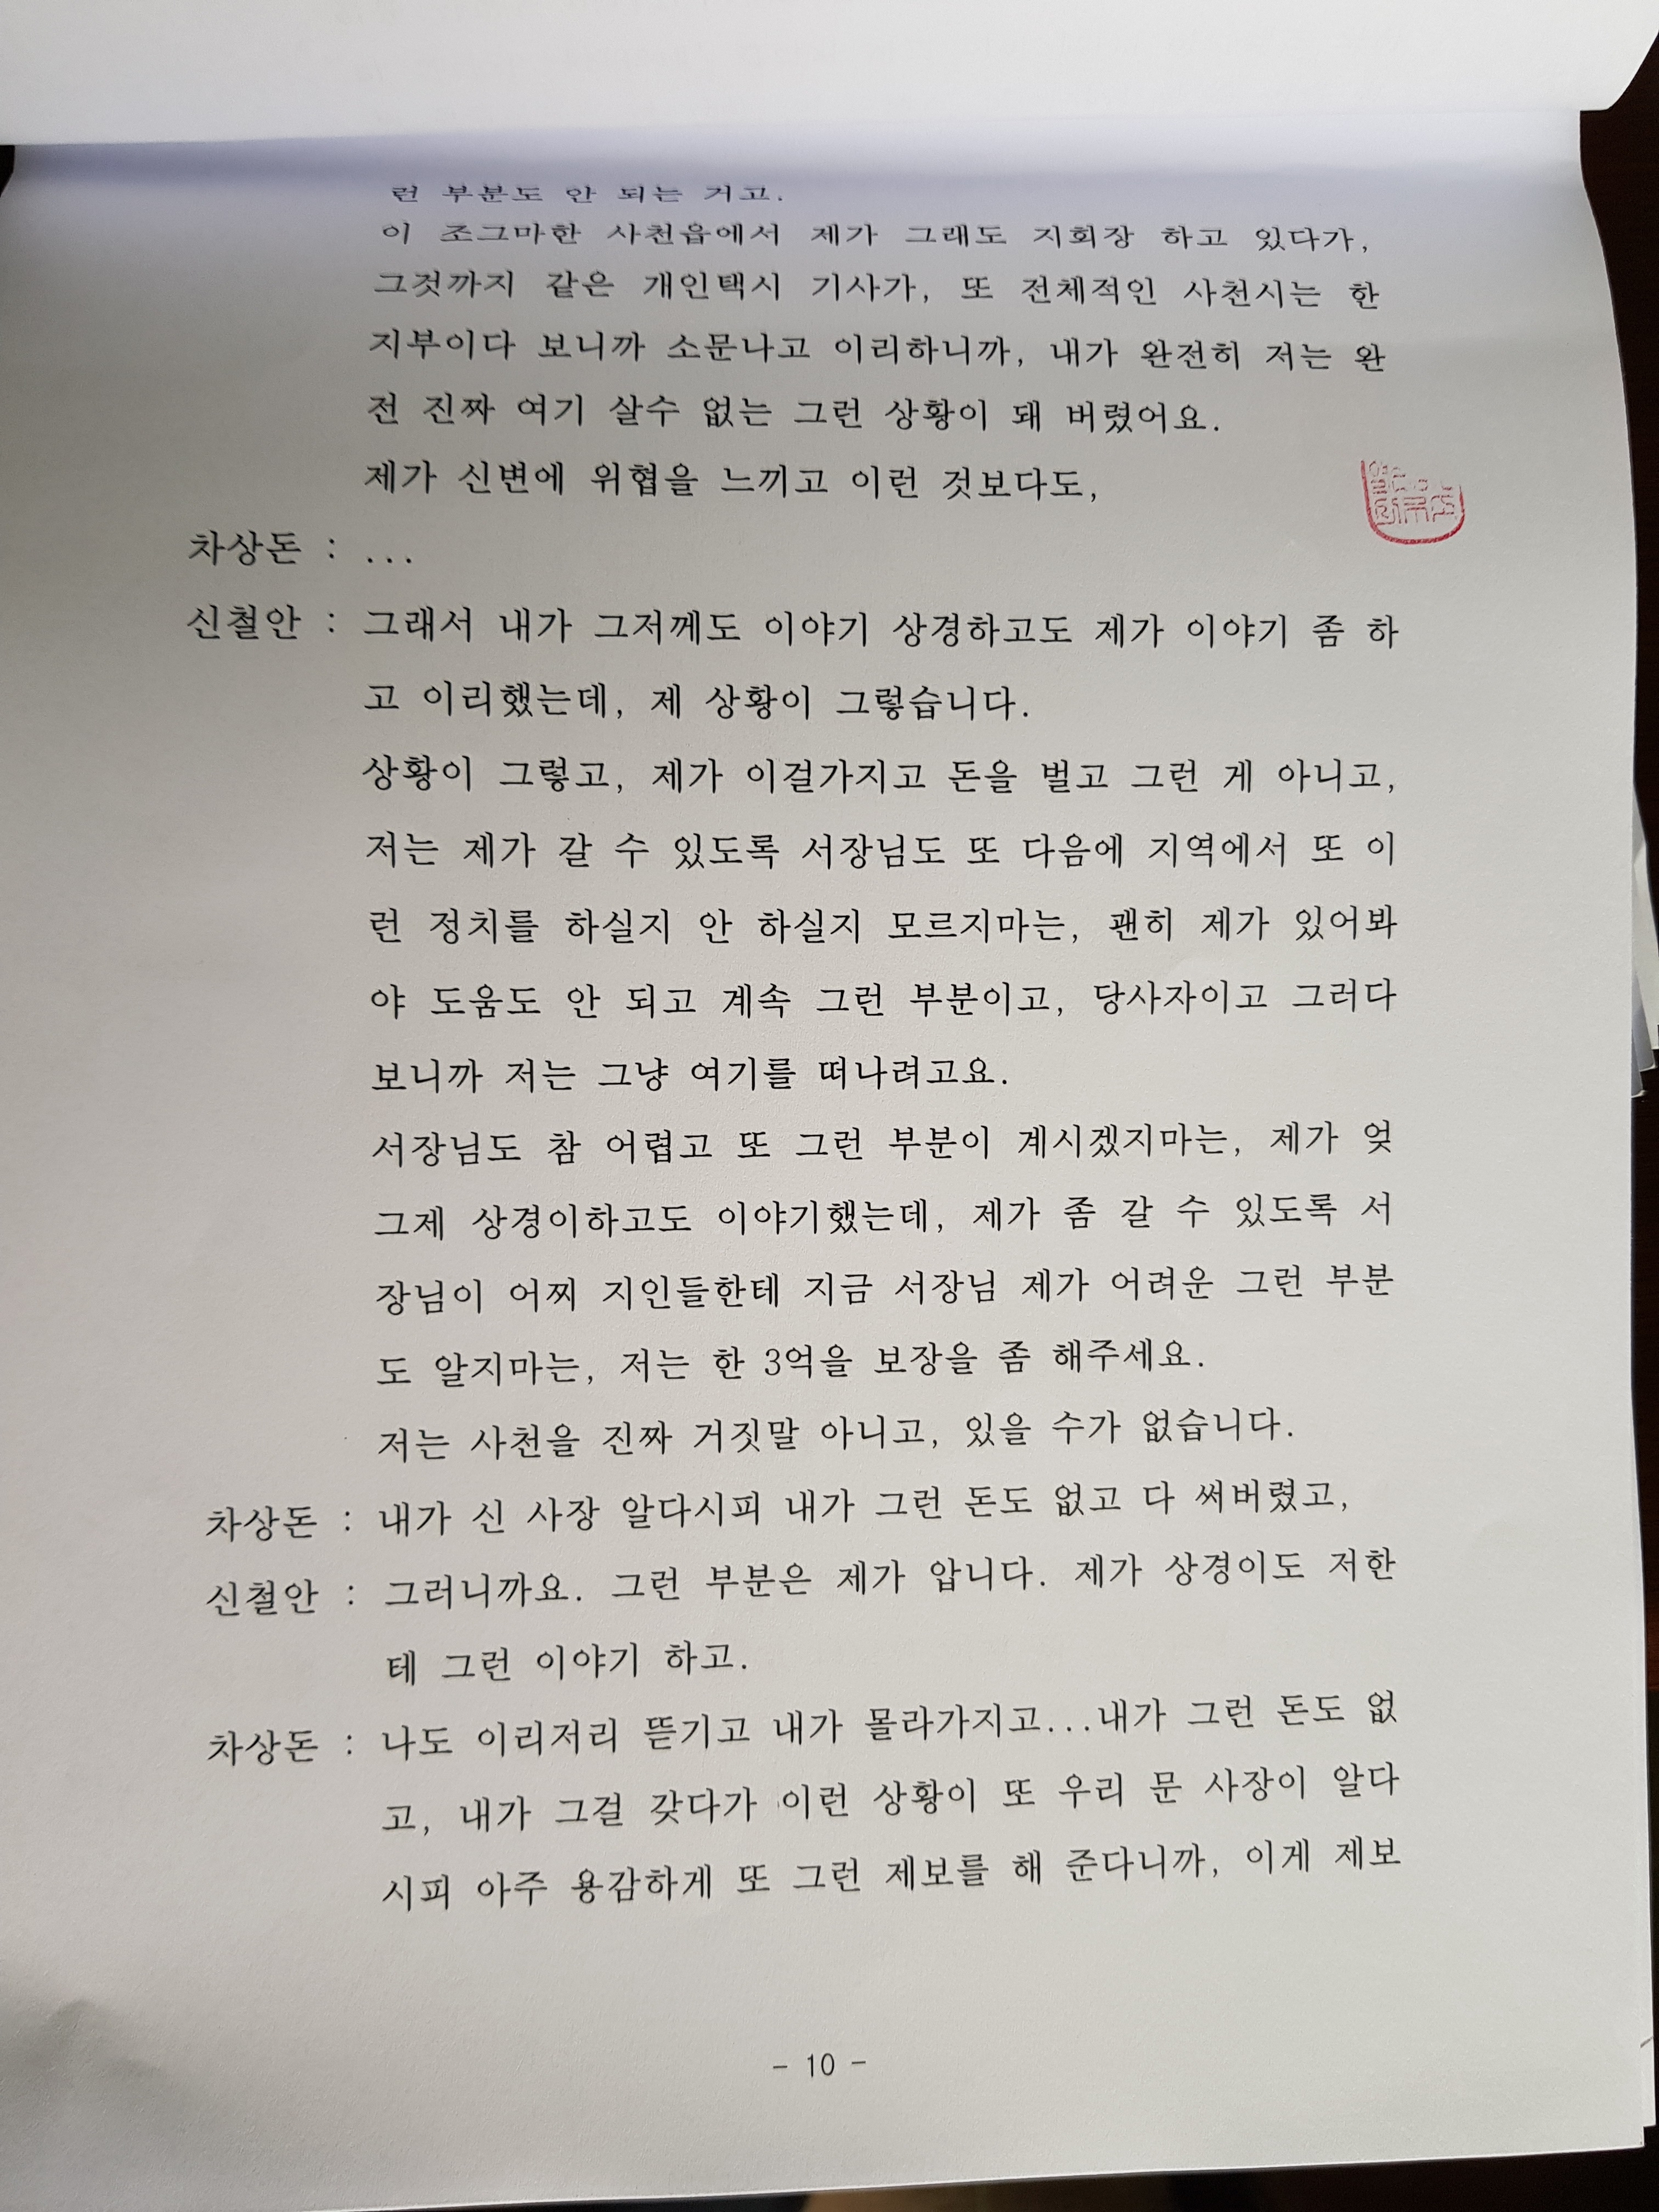 런 부분도 안 되는 거고.
이 조그마한 사천읍에서 제가 그래도 지회장 하고 있다가,
그것까지 같은 개인택시 기사가, 또 전체적인 사천시는 한
지부이다 보니까 소문나고 이리하니까, 내가 완전히 저는 완
전 진짜 여기 살수 없는 그런 상황이 돼 버렸어요.
제가 신변에 위협을 느끼고 이런 것보다도,
차상돈 : ...
신철안 : 그래서 내가 그저께도 이야기 상경하고도 제가 이야기 좀 하
고 이리했는데, 제 상황이 그렇습니다.
상황이 그렇고, 제가 이걸가지고 돈을 벌고 그런 게 아니고,
저는 제가 갈 수 있도록 서장님도 또 다음에 지역에서 또 이
런 정치를 하실지 안 하실지 모르지마는, 괜히 제가 있어봐
야 도움도 안 되고 계속 그런 부분이고, 당사자이고 그러다
보니까 저는 그냥 여기를 떠나려고요.
서장님도 참 어렵고 또 그런 부분이 계시겠지마는, 제가 엊
그제 상경이하고도 이야기했는데, 제가 좀 갈 수 있도록 서
장님이 어찌 지인들한테 지금 서장님 제가 어려운 그런 부분
도 알지마는, 저는 한 3억을 보장을 좀 해주세요.
저는 사천을 진짜 거짓말 아니고, 있을 수가 없습니다.
차상돈 : 내가 신 사장 알다시피 내가 그런 돈도 없고 다 써버렸고,
신철안 : 그러니까요. 그런 부분은 제가 압니다. 제가 상경이도 저한
테 그런 이야기 하고.
차상돈 : 나도 이리저리 뜯기고 내가 몰라가지고...내가 그런 돈도 없
고, 내가 그걸 갖다가 이런 상황이 또 우리 문 사장이 알다
시피 아주 용감하게 또 그런 제보를 해 준다니까, 이게 제보
- 10 -